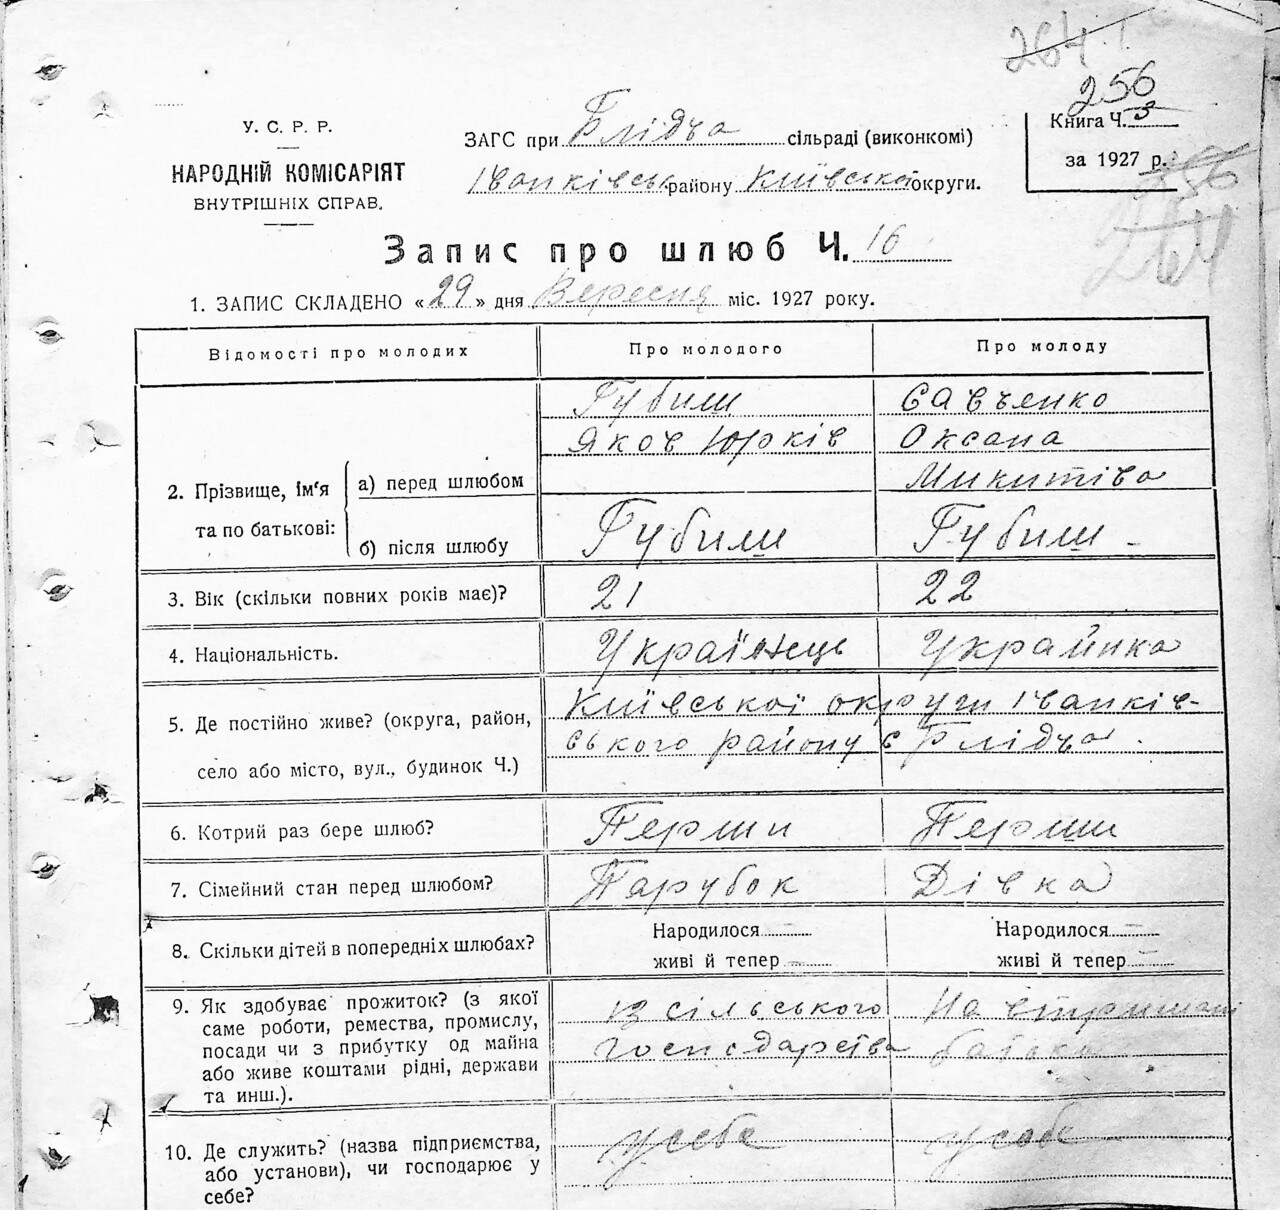 264
256
У. С. Р. Р.
НАРОДНІЙ КОМІСАРІЯТ
ВНУТРІШНІХ СПРАВ.
ЗАГС при Блідча сільраді (виконкомі)
Іванківськ району Київської округи.
Книга Ч. 3
за 1927 р.
256
264
Запис про шлюб Ч. 16
1. ЗАПИС СКЛАДЕНО «29» дня Вересня міс. 1927 року.
Відомості про молодих Про молодого Про молоду
2. Прізвище, ім'я та по батькові:
а) перед шлюбом
Губиш
Яков Юрків
Савченко
Оксана
Микитіва
б) після шлюбу Губиш Губиш
3. Вік (скільки повних років має)? 21 22
4. Національність. Українець Українка
5. Де постійно живе? (округа, район,
село або місто, вул., будинок Ч.)
Київської округи Іванків-
ського району с Блідча.
6. Котрий раз бере шлюб? Перши Перши
7. Сімейний стан перед шлюбом? Парубок Дівка
8. Скільки дітей в попередніх шлюбах? Народилося — Народилося —
живі й тепер — живі й тепер —
9. Як здобуває прожиток? (з якої
саме роботи, ремества, промислу,
посади чи з прибутку од майна
або живе коштами рідні, держави
та инш.).
із сільського
господарства
На
батька
10. Де служить? (назва підприємства,
або установи), чи господарює у
себе?
у себе у себе